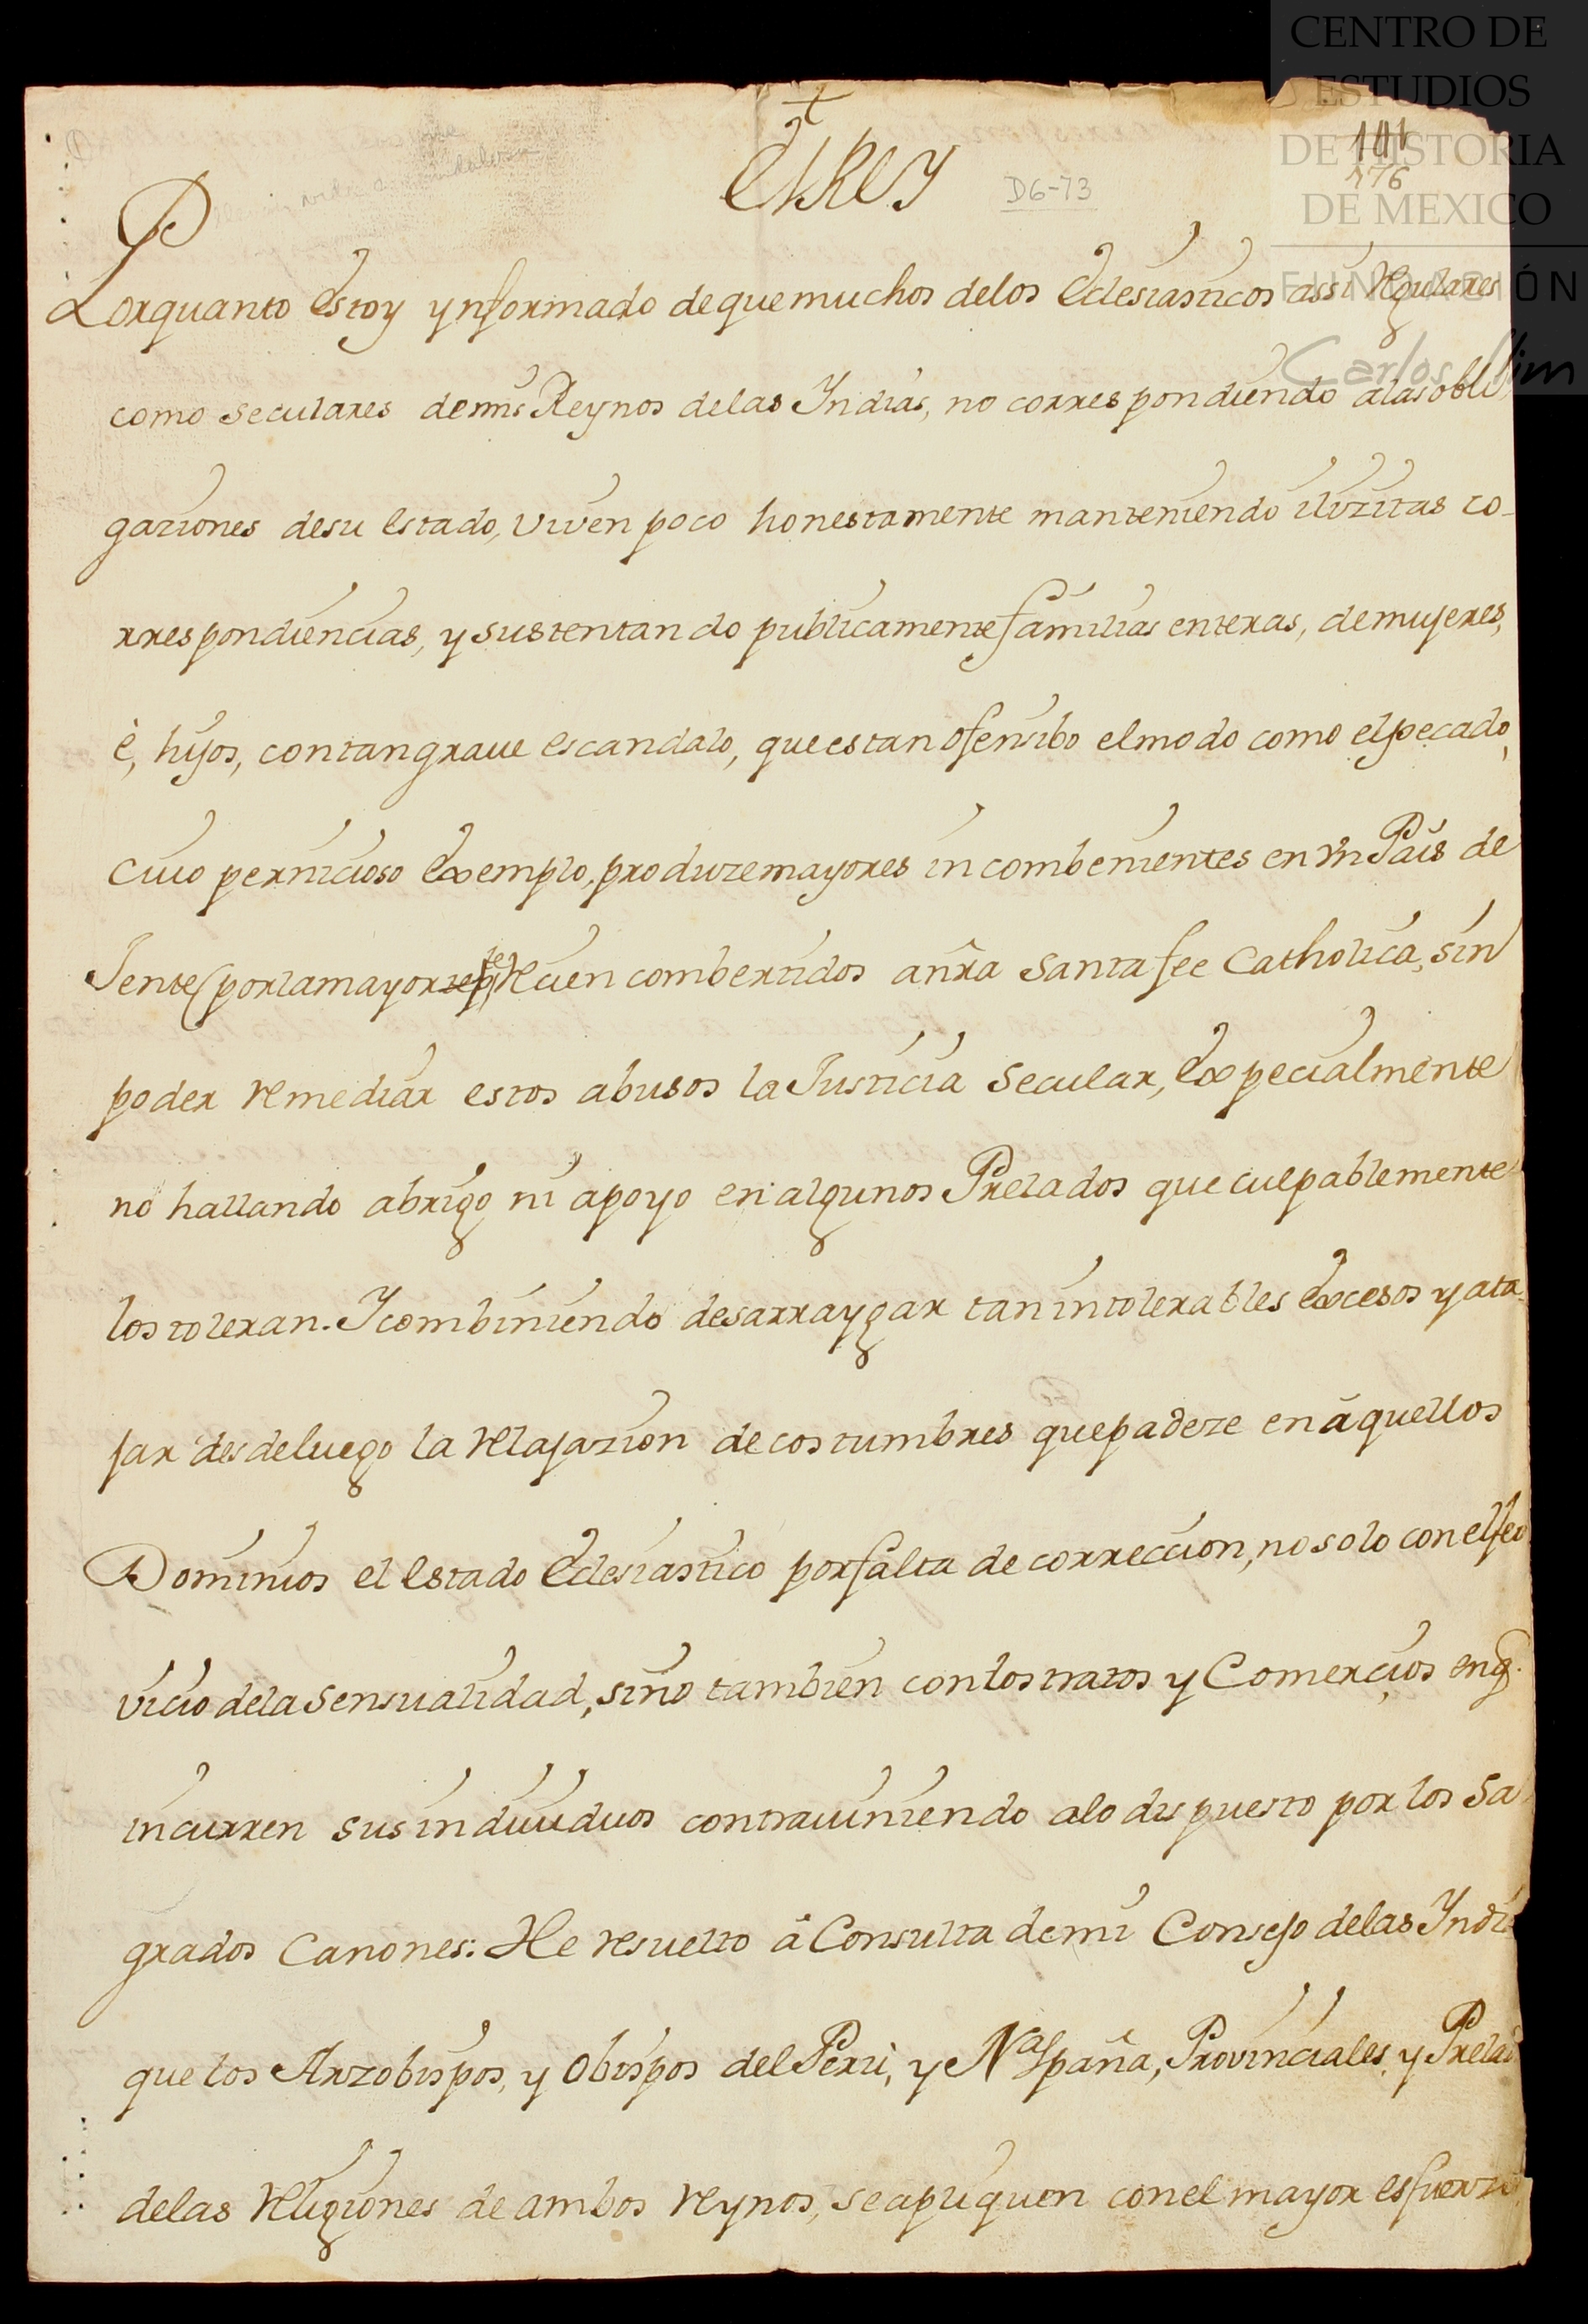 CENTRO DE
ESTUDIOS
DE HISTORIA
DE MEXICO
FUNDACIÓN
Carlos Slim
101
176
D6-73
El Rey
Porquanto estoy ynformado de que muchos delos Eclesiasticos assi Regulares
como seculares demis Reynos delas Indias, no correspondiendo alas obli
gaziones desu estado, viven poco honestamente manteniendo ilizitas co-
rrespondiencias, y sustentando publicamente familias enteras, demujeres,
è, hijos, contangraue escandalo, que es tan ofensibo elmodo como elpecado,
cuio pernicioso exemplo, produze mayores incombenientes en vn Pais de
Jente (por la mayor pte) recien combertidos a nra Santa fee Catholica, sin
poder remediar estos abusos la Justicia Secular, expecialmente
no hallando abrigo ni apoyo en algunos Prelados que culpablemente
los toleran. Y combiniendo desarraygar tan intolerables excesos y ata
jar desdeluego la relajazion de costumbres que padeze en àquellos
Dominios el estado Eclesiastico por falta de correccion, no solo con el feo
vicio dela Sensualidad, sino tambien con los tratos y Comercios en q.
incurren sus individuos contrauiniendo alo dispuesto por los Sa
grados Canones: He resuelto â Consulta demi Consejo delas Indi
que los Arzobispos, y Obispos del Perù, y Na España, Provinciales, y Prelad
delas religiones de ambos reynos, se apliquen con el mayor esfuerzo